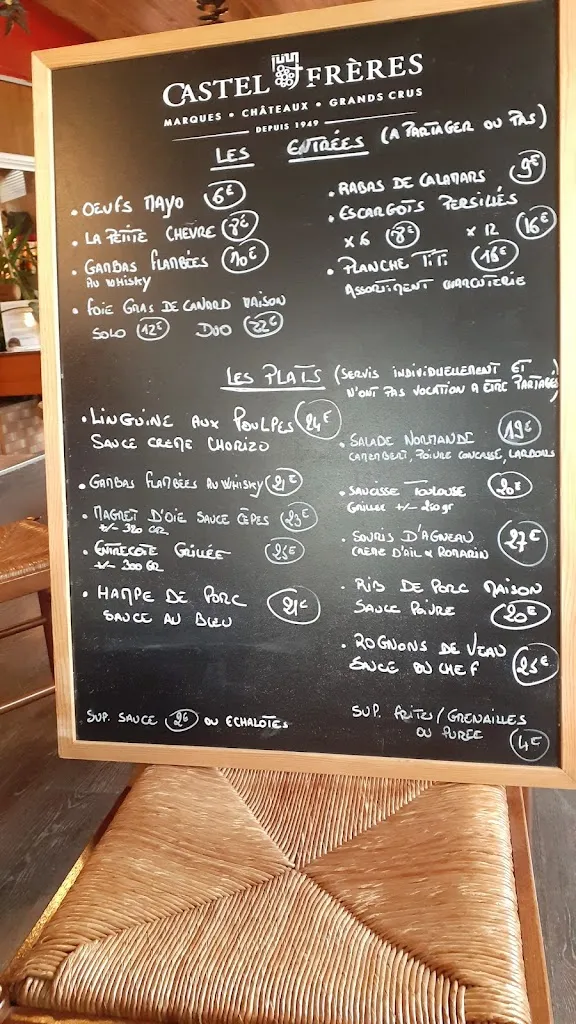 CASTEL FRÈRES
MARQUES • CHÂTEAUX • GRANDS CRUS
DEPUIS 1949
LES ENTRÉES (A PARTAGER OU PAS)
• OEUFS MAYO 6€
• LA PETITE CHÈVRE 8€
• GAMBAS FLAMBÉES 10€
AU WHISKY
• FOIE GRAS DE CANARD MAISON
SOLO 12€ DUO 22€
• RABAS DE CALAMARS 9€
• ESCARGOTS PERSILLÉS
x 6 8€ x 12 16€
• PLANCHE TITI 18€
ASSORTIMENT CHARCUTERIE
LES PLATS (SERVIS INDIVIDUELLEMENT ET
N'ONT PAS VOCATION A ÊTRE PARTAGÉS
• LINGUINE AUX POULPES 24€
SAUCE CREME CHORIZO
• GAMBAS FLAMBÉES AU WHISKY 21€
• MAGRET D'OIE SAUCE CÈPES 23€
+/- 320 GR
• ENTRECÔTE GRILLÉE 25€
+/- 300 GR
• HAMPE DE PORC 21€
SAUCE AU BLEU
• SALADE NORMANDE 19€
CAMEMBERT, POIVRE CONCASSÉ, LARDONS
• SAUCISSE TOULOUSE 20€
GRILLÉE +/- 250 gr
• SOURIS D'AGNEAU 27€
CREME D'AIL & ROMARIN
• RIB DE PORC MAISON
SAUCE POIVRE 20€
• ROGNONS DE VEAU
SAUCE DU CHEF 25€
SUP. SAUCE 2€ OU ECHALOTES
SUP. FRITES/GRENAILLES
OU PUREE 4€